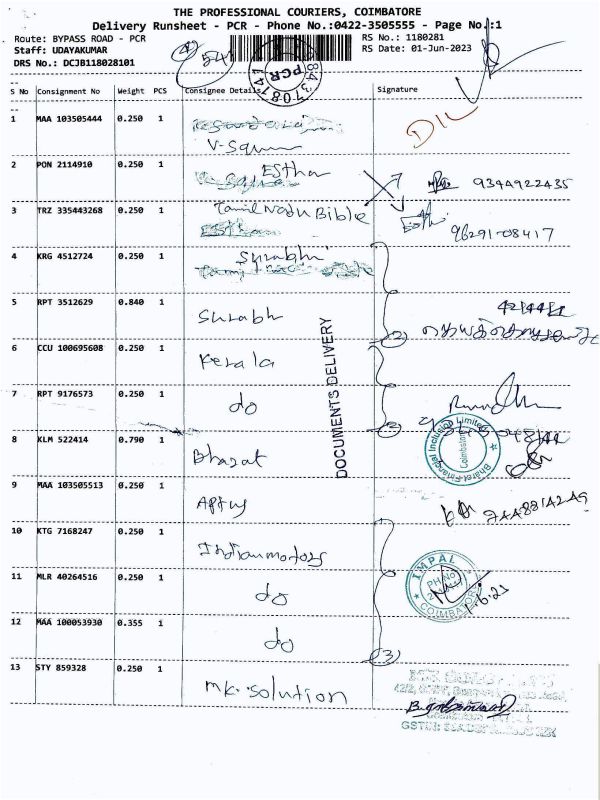 THE PROFESSIONAL COURIERS, COIMBATORE
Delivery Runsheet - PCR - Phone No.:0422-3505555 - Page No.:1
Route: BYPASS ROAD - PCR
RS No.: 1180281
Staff: UDAYAKUMAR
RS Date: 01-Jun-2023
DRS No.: DCJB118028101
54
PCR
S No Consignment No Weight PCS Consignee Details Signature
1 MAA 103505444 0.250 1
V-Square
2 PON 2114910 0.250 1 Esther 9344922435
3 TRZ 335443268 0.250 1 Tamil Nadu Bible
96291-08417
4 KRG 4512724 0.250 1 Surabhi
5 RPT 3512629 0.840 1 Surabhi
(2)
6 CCU 100695608 0.250 1 Kerala
DOCUMENTS DELIVERY
7 RPT 9176573 0.250 1 do
(2)
8 KLM 522414 0.790 1 Bharat
Bharat Financial Inclusion Limited
Coimbatore
9 MAA 103505513 0.250 1 Aptus
10 KTG 7168247 0.250 1 Indian motors
11 MLR 40264516 0.250 1 do
IMPAL
PH.No
COIMBATORE
12 MAA 100053930 0.355 1 do
(3)
13 STY 859328 0.250 1 mk. solution